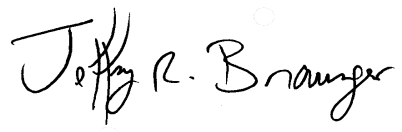 Jeffry R. Brounger